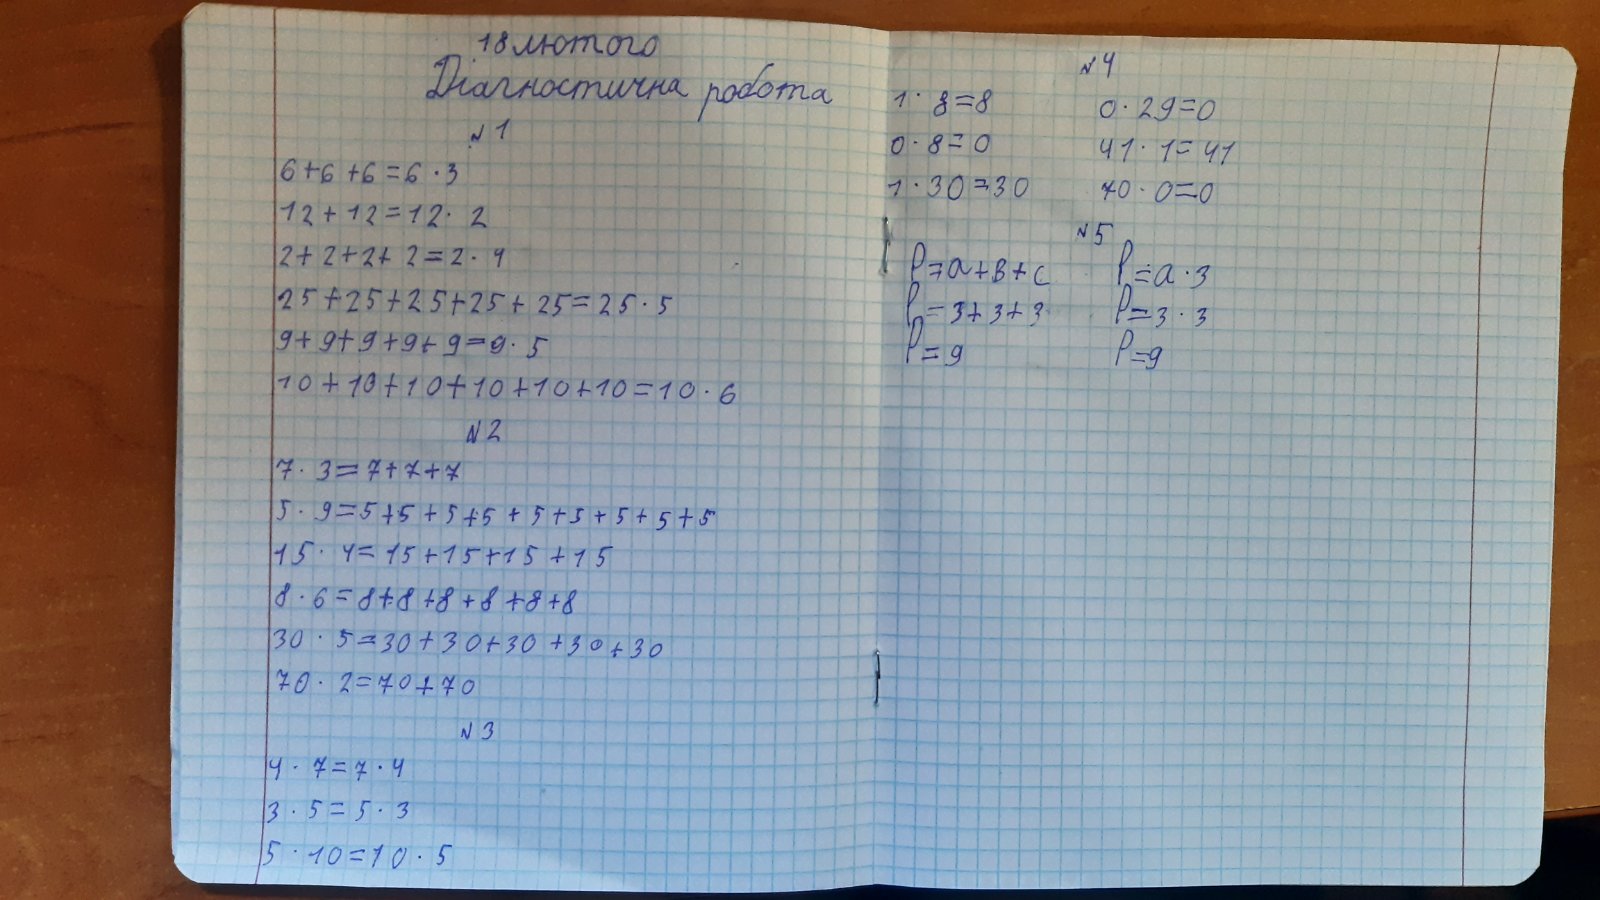 18 лютого
Діагностична робота
№1
6+6+6=6·3
12+12=12·2
2+2+2+2=2·4
25+25+25+25+25=25·5
9+9+9+9+9=9·5
10+10+10+10+10+10=10·6
№2
7·3=7+7+7
5·9=5+5+5+5+5+5+5+5+5
15·4=15+15+15+15
8·6=8+8+8+8+8+8
30·5=30+30+30+30+30
70·2=70+70
№3
4·7=7·4
3·5=5·3
5·10=10·5
№4
1·8=8 0·29=0
0·8=0 41·1=41
1·30=30 70·0=0
№5
P=a+в+c P=a·3
P=3+3+3 P=3·3
P=9 P=9